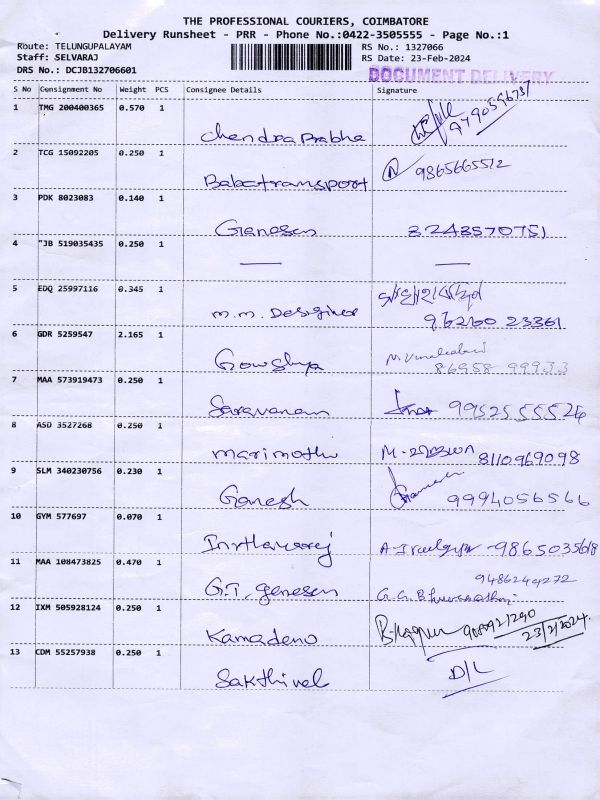 THE PROFESSIONAL COURIERS, COIMBATORE
Delivery Runsheet - PRR - Phone No.:0422-3505555 - Page No.:1
Route: TELUNGUPALAYAM RS No.: 1327066
Staff: SELVARAJ RS Date: 23-Feb-2024
DRS No.: DCJB132706601 DOCUMENT DELIVERY
S No Consignment No Weight PCS Consignee Details Signature
1 TMG 200400365 0.570 1
Chendraprabha
2 TCG 15092205 0.250 1
Babatransport 9865665512
3 PDK 8023083 0.140 1
Ganesan 8248570751
4 "JB 519035435 0.250 1
5 EDQ 25997116 0.345 1
m.m. Designer 96260 23361
6 GDR 5259547 2.165 1
Gowshya 86958 99933
7 MAA 573919473 0.250 1
Saravanan 9952555526
8 ASD 3527268 0.250 1
marimothu 8110969098
9 SLM 340230756 0.230 1
Ganesh 9994056566
10 GYM 577697 0.070 1
9865035618
11 MAA 108473825 0.470 1
9486249272
G.T. Genesen
12 IXM 505928124 0.250 1
Kamadenu 23/2/2024
13 CDM 55257938 0.250 1
Sakthivel D/L